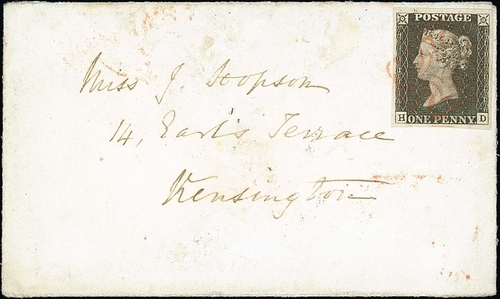 POSTAGE
H ONE PENNY D
Miss J. Hopson
14, Earl's Terrace
Kensington